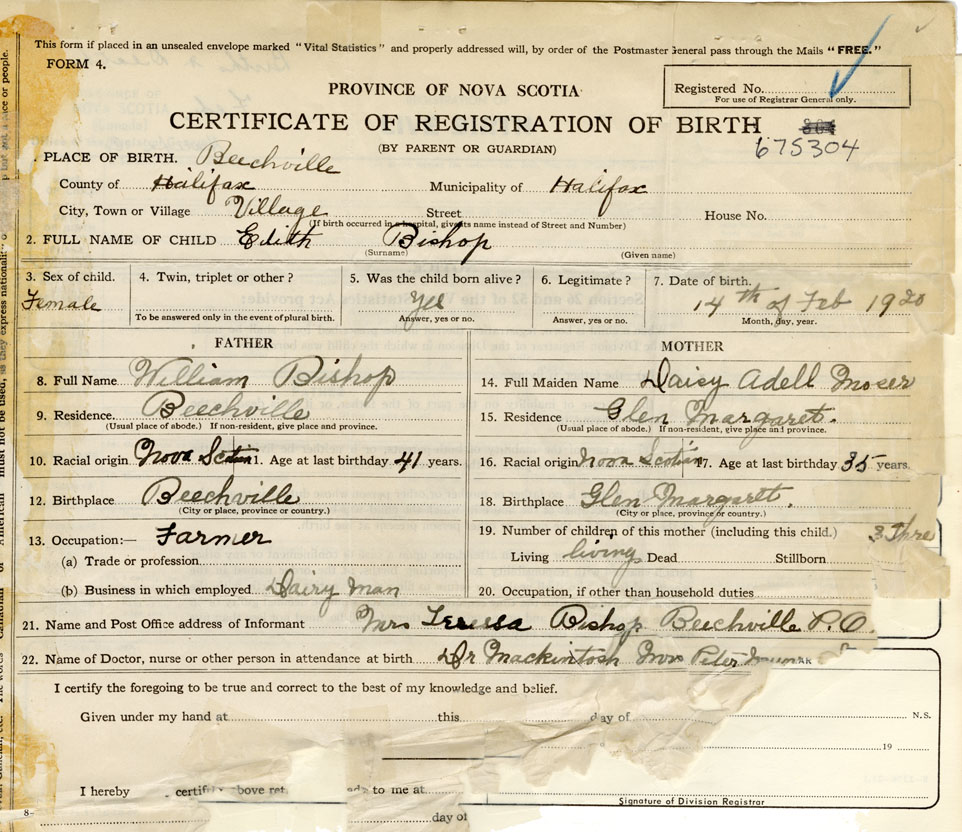 This form if placed in an unsealed envelope marked "Vital Statistics" and properly addressed will, by order of the Postmaster General pass through the Mails "FREE."
FORM 4.
PROVINCE OF NOVA SCOTIA
Registered No.
For use of Registrar General only.
CERTIFICATE OF REGISTRATION OF BIRTH
(BY PARENT OR GUARDIAN)
675304
. PLACE OF BIRTH. Beechville
County of Halifax Municipality of Halifax
City, Town or Village Village Street House No.
(If birth occurred in a hospital, give its name instead of Street and Number)
2. FULL NAME OF CHILD Edith Bishop
(Surname) (Given name)
3. Sex of child. 4. Twin, triplet or other? 5. Was the child born alive? 6. Legitimate? 7. Date of birth.
Female Yes 14th of Feb 1920
To be answered only in the event of plural birth. Answer, yes or no. Answer, yes or no. Month, day, year.
FATHER
8. Full Name William Bishop
9. Residence. Beechville
(Usual place of abode.) If non-resident, give place and province.
10. Racial origin Nova Scotian 11. Age at last birthday 41 years.
12. Birthplace Beechville
(City or place, province or country.)
13. Occupation:— Farmer
(a) Trade or profession
(b) Business in which employed Dairy man
MOTHER
14. Full Maiden Name Daisy Adell Moser
15. Residence Glen Margaret.
(Usual place of abode.) If non-resident, give place and province.
16. Racial origin Nova Scotian 17. Age at last birthday 35 years.
18. Birthplace Glen Margaret.
(City or place, province or country.)
19. Number of children of this mother (including this child.) 3 Thre
Living living Dead Stillborn
20. Occupation, if other than household duties
21. Name and Post Office address of Informant Mrs Teressa Bishop Beechville P.O.
22. Name of Doctor, nurse or other person in attendance at birth Dr Mackintosh Mrs Peter
I certify the foregoing to be true and correct to the best of my knowledge and belief.
Given under my hand at this day of N.S.
19
I hereby certify above ret to me at
Signature of Division Registrar
8- day of